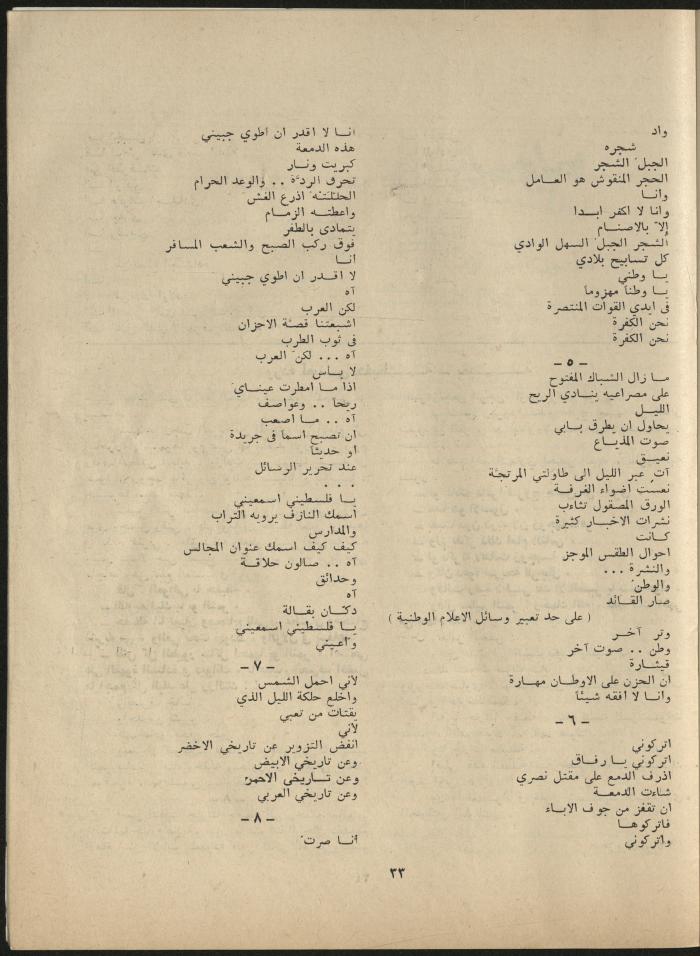 واد
شجره
الجبل الشجر
الحجر المنقوش هو العـامل
وانـا
وانا لا اكفر ابـدا
إلا بالاصنـام
الشجر الجبل السهل الوادي
كل تسابيح بلادي
يـا وطني
يـا وطنا مهزوما
في ايدي القوات المنتصرة
نحن الكفرة
نحن الكفرة
– ٥ –
مـا زال الشباك المفتوح
على مصراعيه ينـادي الريح
الليـل
يحاول ان يطرق بـابي
صوت المذيـاع
نعيـق
آت عبر الليل الى طاولتي المرتجّة
نعست اضواء الغرفـة
الورق المصقول تثاءب
نشرات الاخبـار كثيرة
كـانت
احوال الطقس الموجز
والنشرة ...
والوطن
صار القـائد
( على حد تعبير وسائل الاعلام الوطنية )
وتر آخـر
وطن .. صوت آخر
قيثـارة
ان الحزن على الاوطـان مهـارة
وانـا لا افقه شيئا
– ٦ –
اتركوني
اتركوني يـا رفـاق
اذرف الدمع على مقتل نصري
شاءت الدمعـة
ان تقفز من جوف الابـاء
فاتركوهـا
واتركوني
انـا لا اقدر ان اطوي جبيني
هذه الدمعة
كبريت ونـار
تحرق الردّة .. والوعد الحرام
اذرع الغش
واعطتـه الزمـام
يتمادى بالظفر
فوق ركب الصبح والشعب المسافر
انـا
لا اقـدر ان اطوي جبيني
آه
لكن العرب
اشبعتنا قصّة الاحزان
في ثوب الطرب
آه ... لكن العرب
لا يـأس
اذا مـا امطرت عينـاي
ريحا .. وعواصف
آه .. مـا اصعب
ان تصبح اسما في جريدة
او حديثا
عند تحرير الرسائل
. . .
يـا فلسطيني اسمعيني
اسمك النازف يرويه التراب
والمدارس
كيف كيف اسمك عنوان المجالس
آه .. صالون حلاقـة
وحدائق
آه
دكـان بقـالة
يـا فلسطيني اسمعيني
واعيني
– ٧ –
لأني احمل الشمس
واخلع حلكة الليل الذي
يقتات من تعبي
لأني
انفض التزوير عن تاريخي الاخضر
وعن تاريخي الابيض
وعن تـاريخي الاحمر
وعن تاريخي العربي
– ٨ –
انـا صرت
٣٣